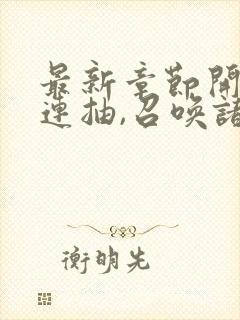 最新章節開
連抽,召喚諸
衡明先